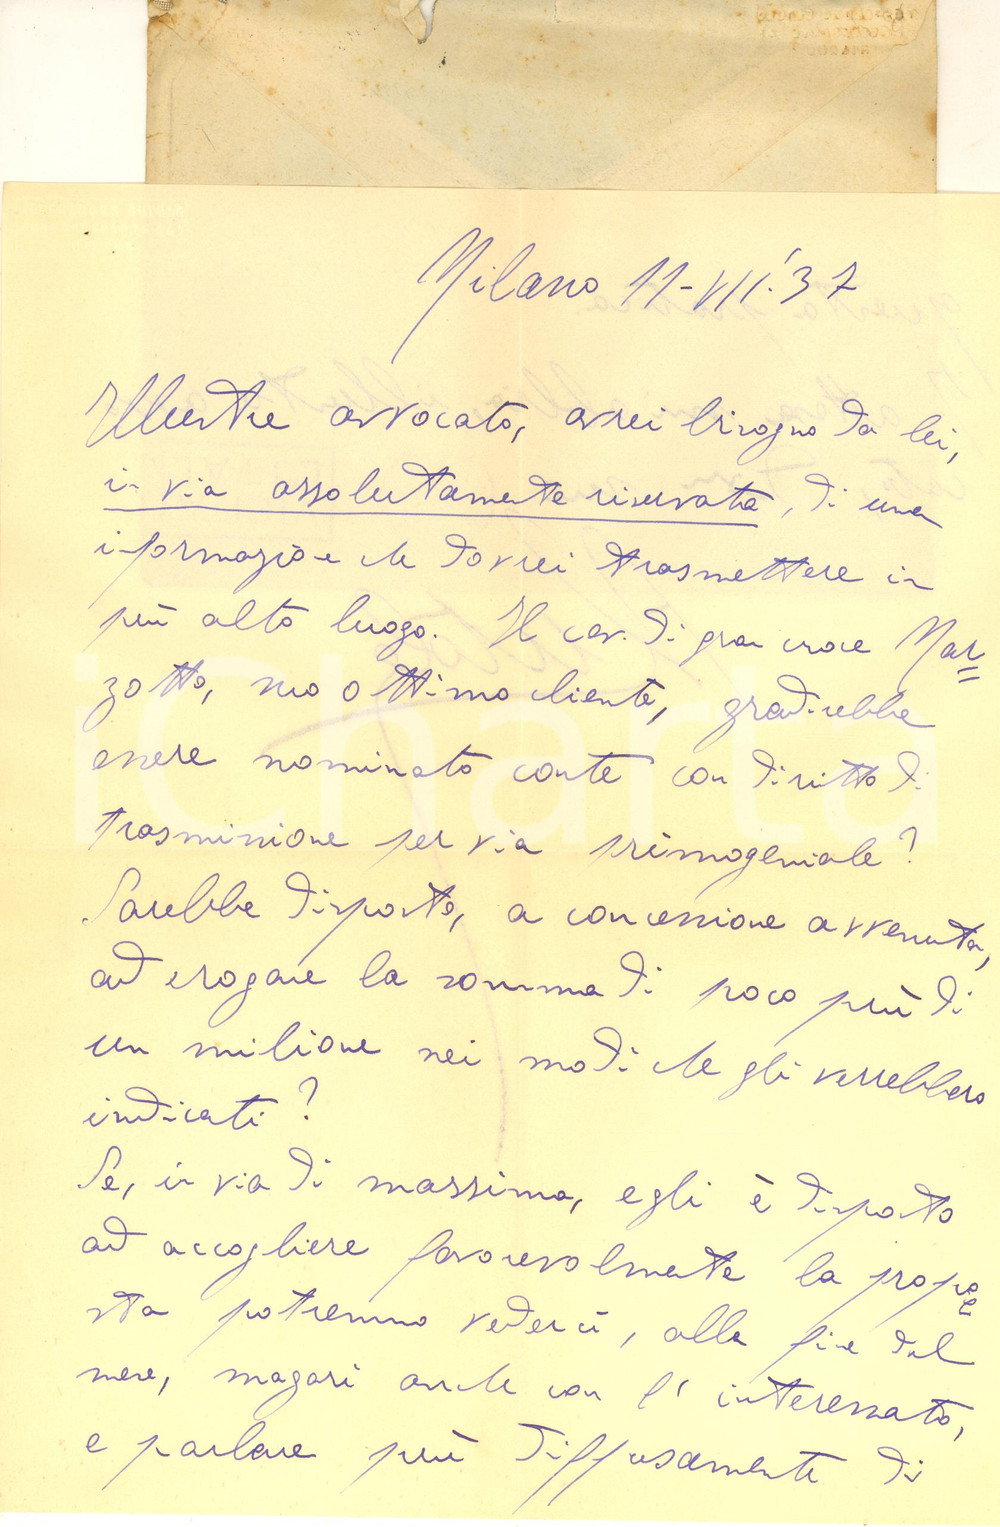 Milano 11-VII.'37
Illustre avvocato, avrei bisogno da lei,
in via assolutamente riservata, di una
informazione che dovrei trasmettere in
più alto luogo. Il cav. di gran croce Mar=
zotto, suo ottimo cliente, gradirebbe
essere nominato conte con diritto di
trasmissione per via primogeniale?
Sarebbe disposto, a concessione avvenuta,
ad erogare la somma di poco più di
un milione nei modi che gli verrebbero
indicati?
Se, in via di massima, egli è disposto
ad accogliere favorevolmente la propo=
sta potremmo vederci, alla fine del
mese, magari anche con l'interessato,
e parlare più diffusamente di
iCharta